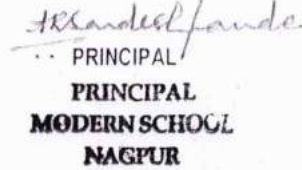 PRINCIPAL
PRINCIPAL
MODERN SCHOOL
NAGPUR